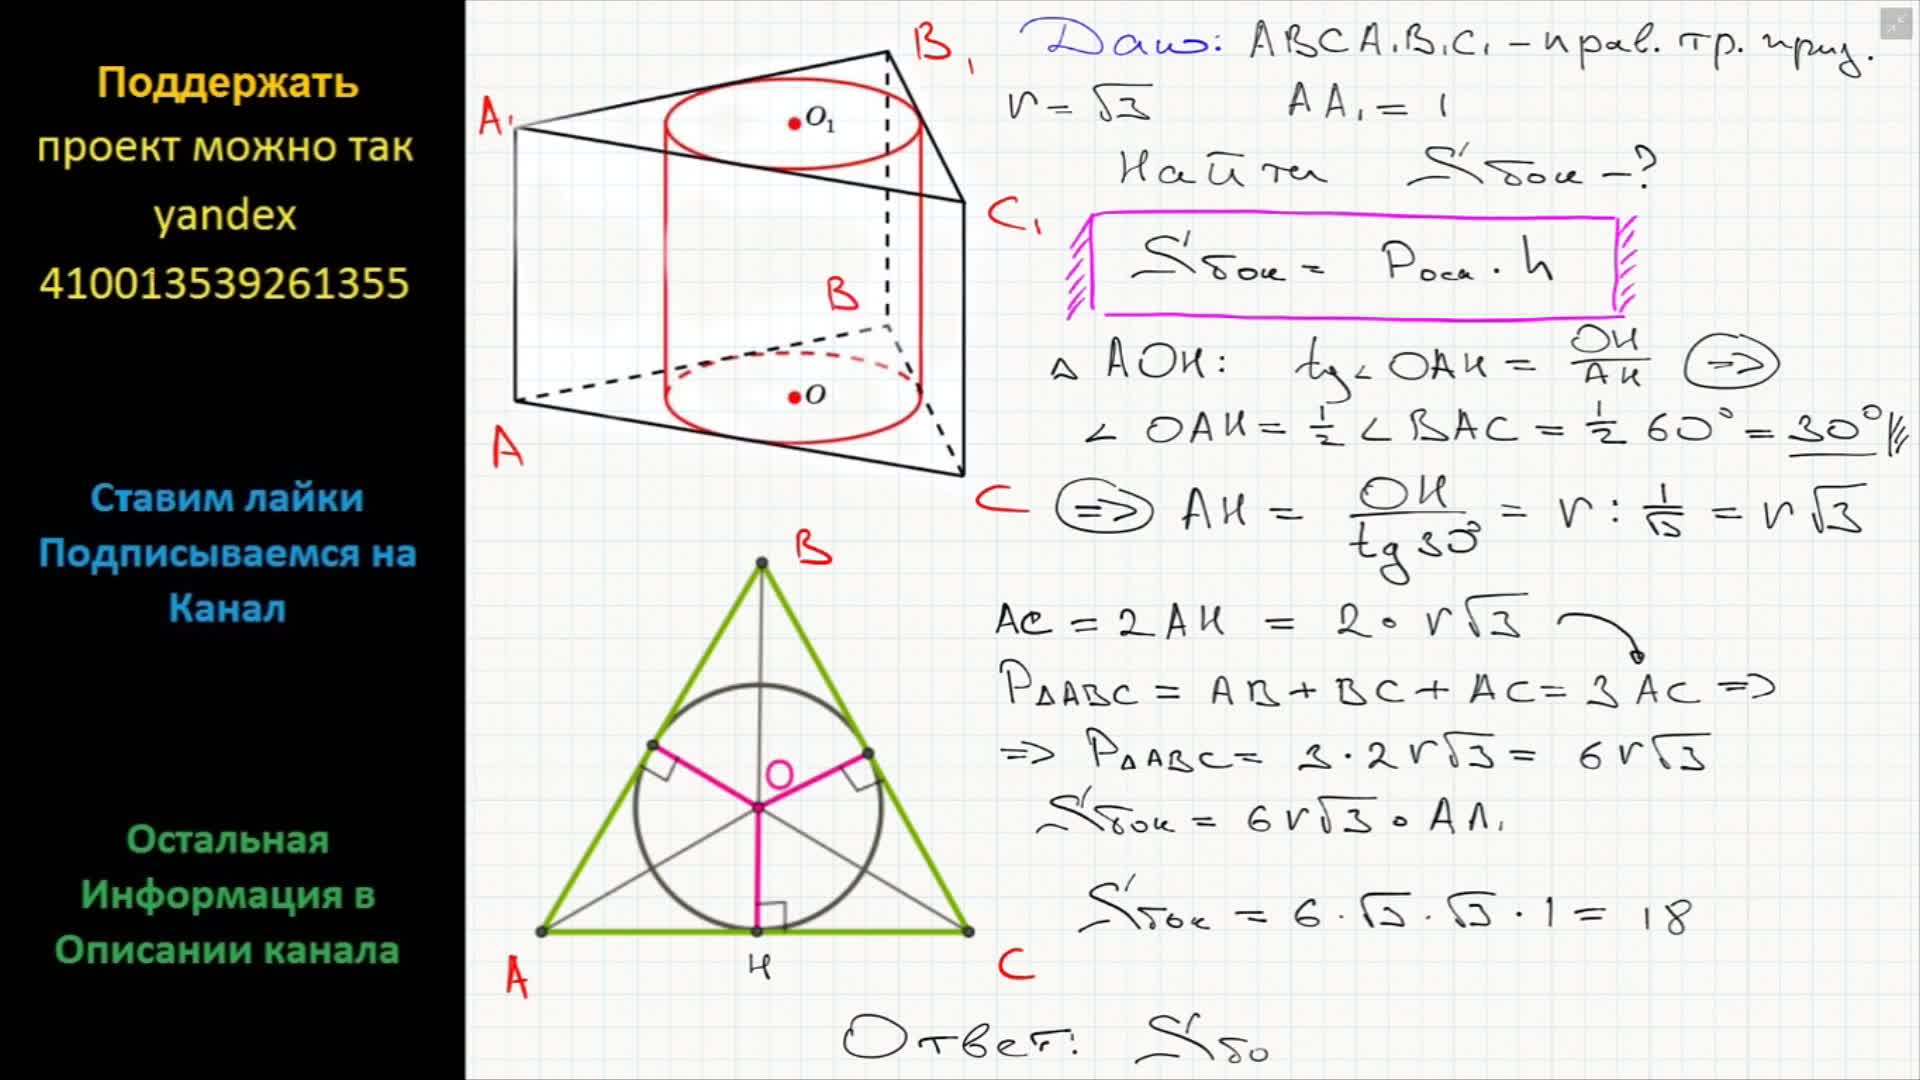 Поддержать
проект можно так
yandex
410013539261355
Ставим лайки
Подписываемся на
Канал
Остальная
Информация в
Описании канала
B₁
A₁
O₁
C₁
B
O
A
C
B
O
A
H
C
Дано: ABCA₁B₁C₁ – прав. тр. приз.
r = √3 AA₁ = 1
Найти Sбок – ?
Sбок = Pосн · h
△ AOH: tg∠OAH = OH/AH ⇒
∠OAH = 1/2 ∠BAC = 1/2 60° = 30°
⇒ AH = OH/tg30° = r : 1/√3 = r√3
AC = 2AH = 2 · r√3
P△ABC = AB + BC + AC = 3AC ⇒
⇒ P△ABC = 3 · 2r√3 = 6r√3
Sбок = 6r√3 · AA₁
Sбок = 6 · √3 · √3 · 1 = 18
Ответ: Sбо